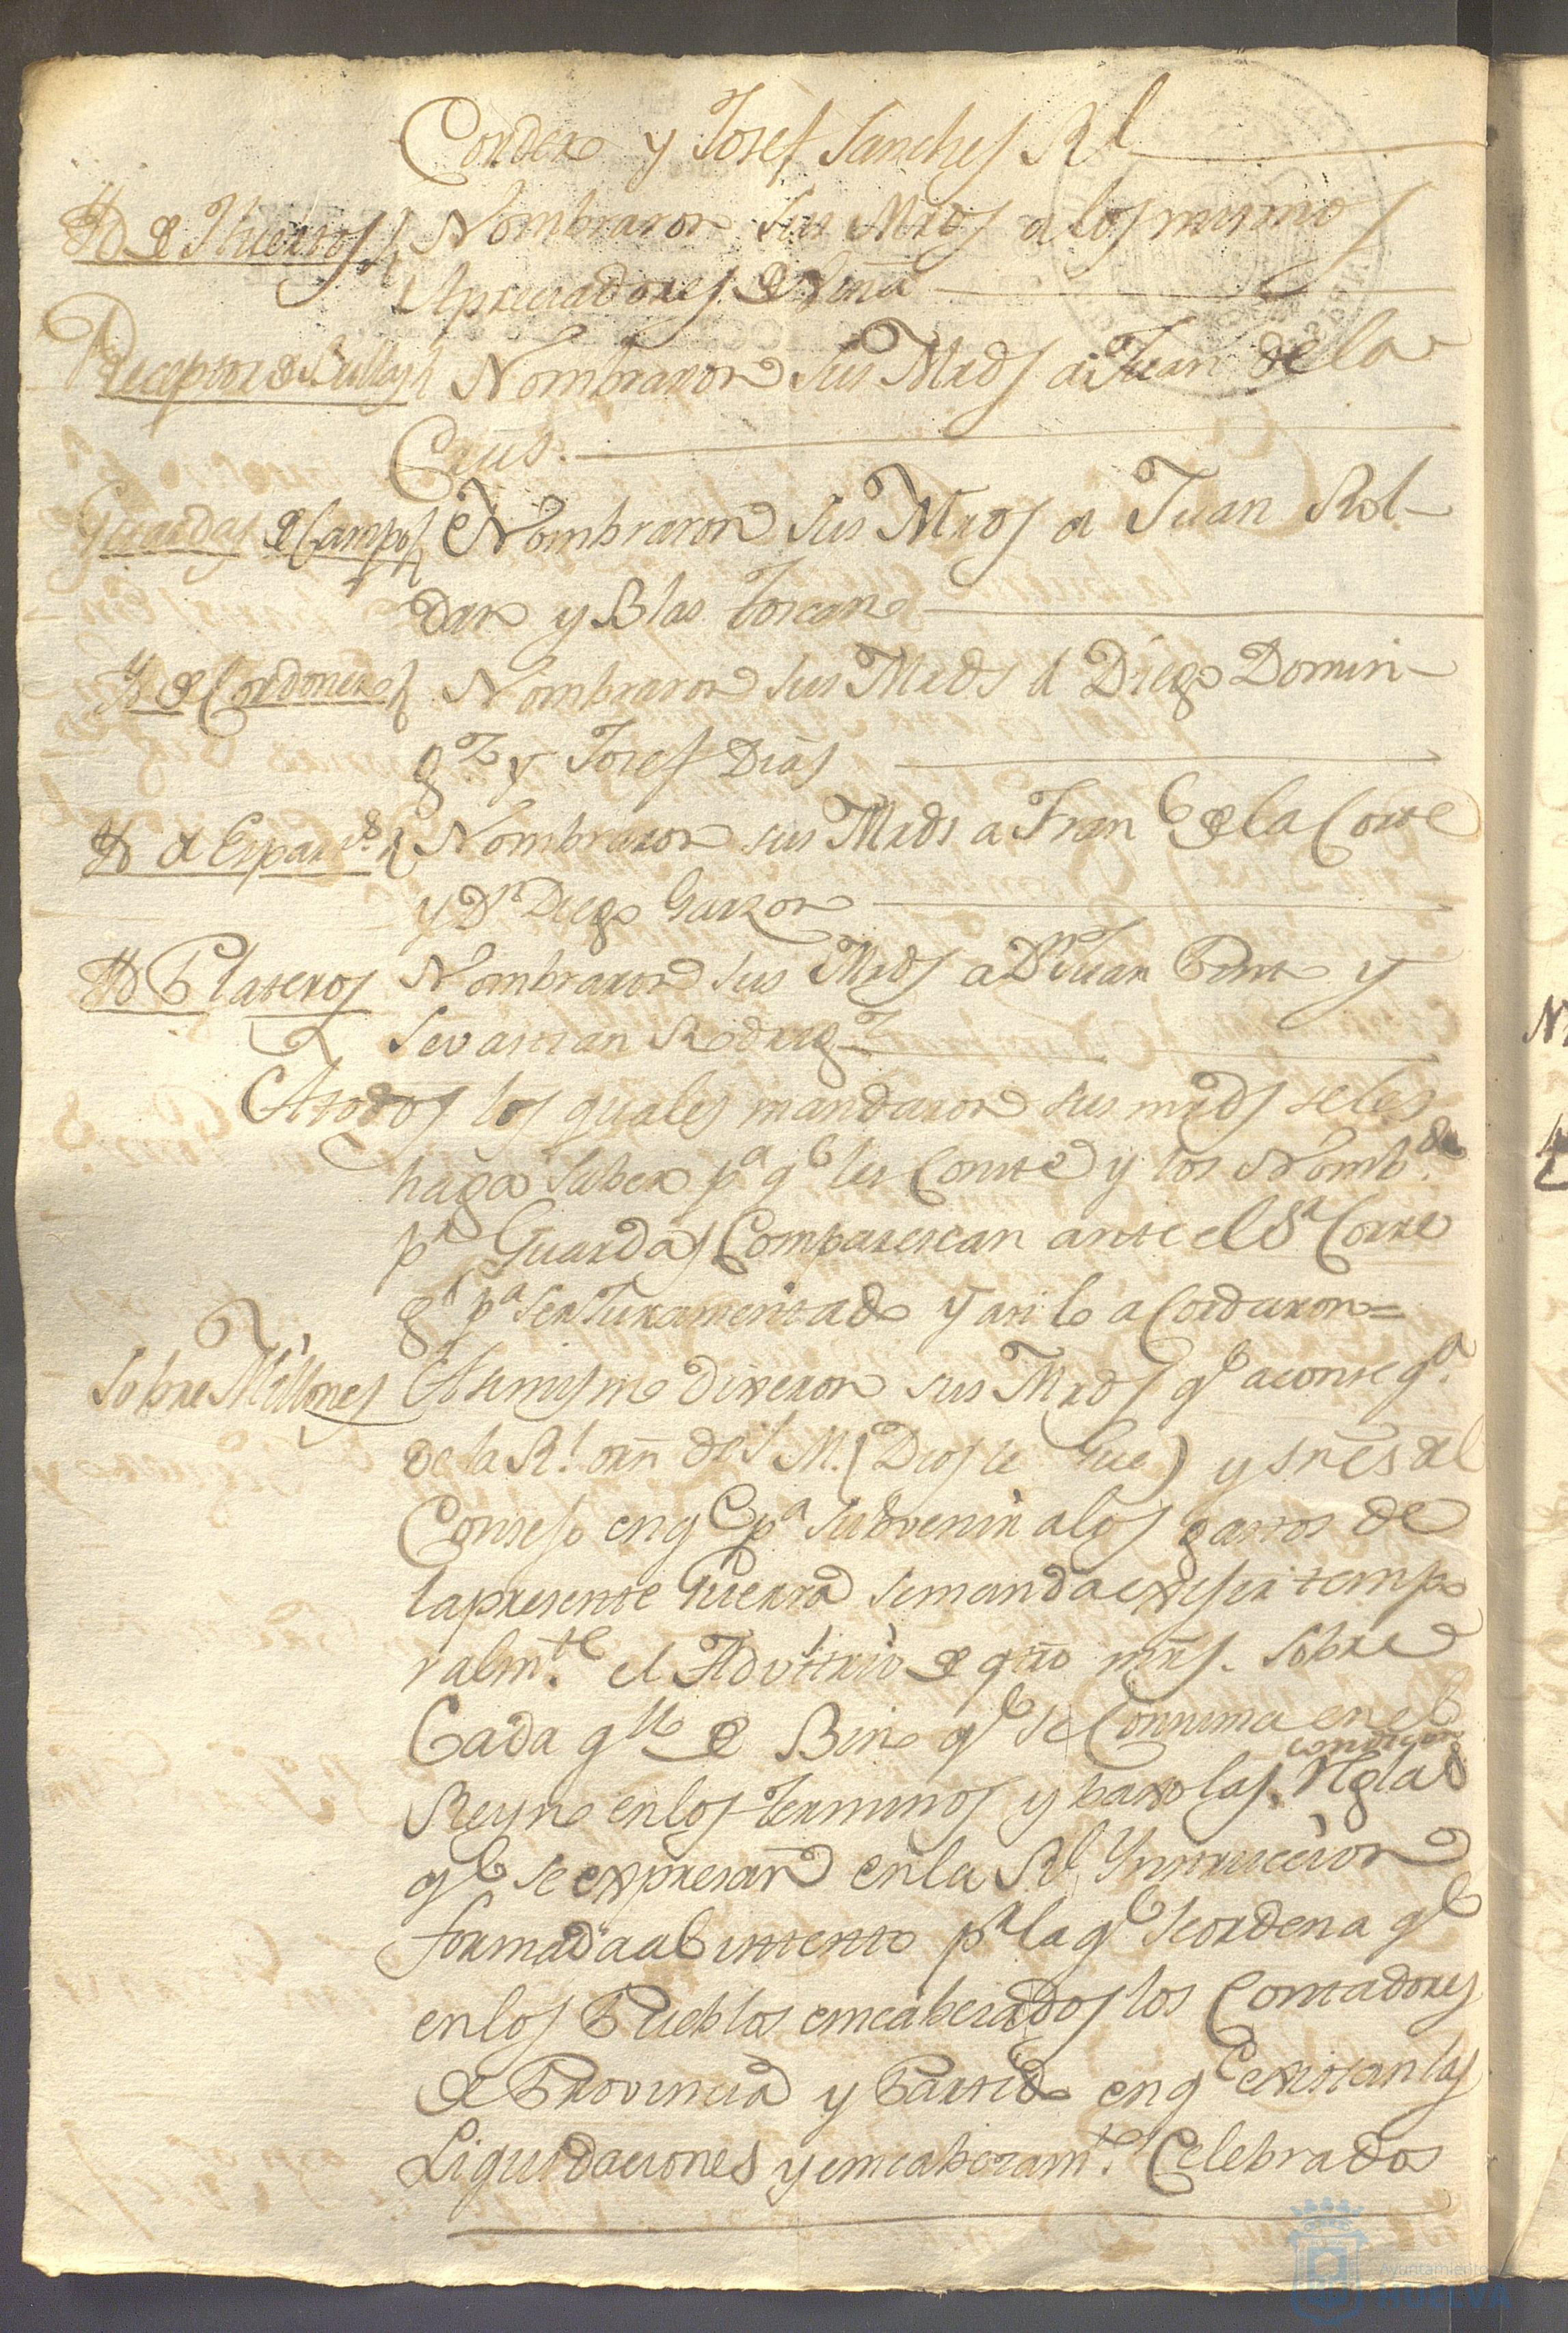 Cordero y Josef Sanches Rl
Yd de Huertos Nombraron sus Mrds a los mismos
Apreciadores de Viña
Receptor de Bullas Nombraron sus Mrds a Juan de la
Crus.
Guardas de Campos Nombraron sus Mrds a Juan Rol-
dan y Blas Toscano
Yd de Cordoneros Nombraron sus Mrds a Diego Domin-
gz y Josef Dias
Yd de Espar.s Nombraron sus Mrds a Franco de la Corte
y Dn Diego Garzon
Yd Plateros Nombraron sus Mrds a Dn Juan Ponte y
Sevastian Rodrigz
A todos los quales mandaron sus mrds se les
haga saber pa qe les Conste y los Nombdos
pa Guardas Comparescan ante el Sr Corre
gr pa ser Juramentado y asi lo acordaron=
Sobre Millones Asimismo dixeron sus Mrds qe a conseqa
de la Rl. orñ de S M. (Dios le Gue) y sres del
Consejo en qe pa subvenir a los gastos de
la presente Guerra se manda exsijir tempo
ralmte. el Advitrio de qtro mrs. sobre
Cada qllo de Bino qe se Consuma en el
Reyno en los terminos y baxo las condiciones Rglas
qe se expresan en la Rl Ynstruccion
formada al intento pr la qe se ordena qe
en los Pueblos encabezados los Contadores
de Provincia y Partido en qe existan las
Liquidaciones y encabezamtos. Celebrados
Ayuntamiento
HUELVA